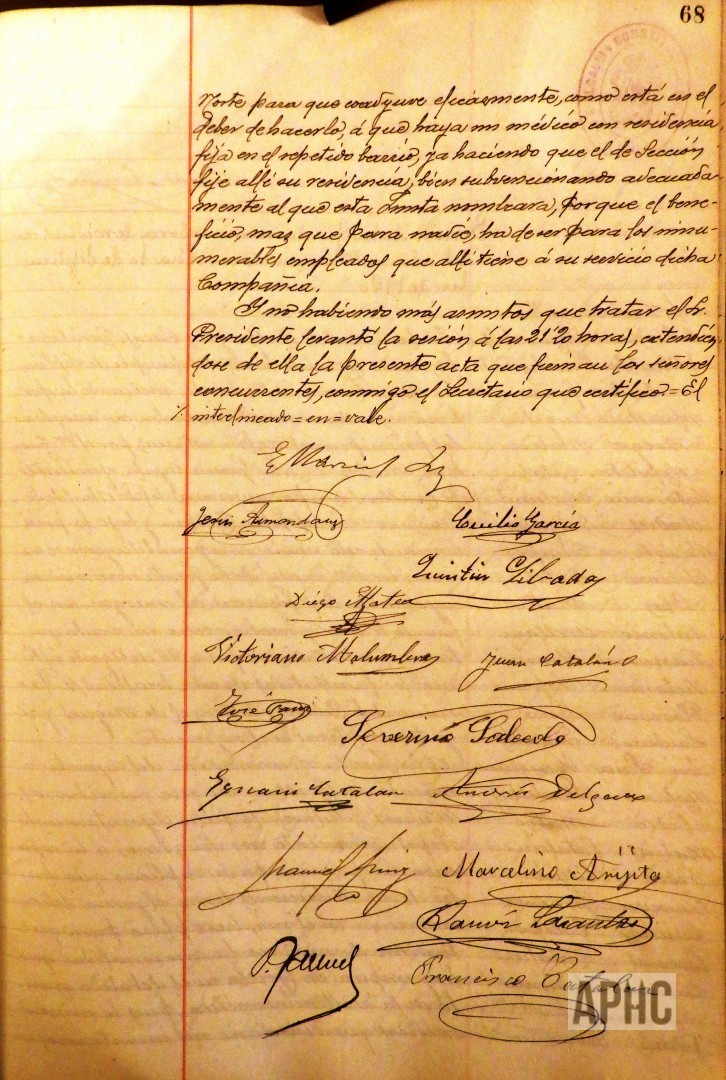 68
Norte para que coadyuve eficazmente, como está en el
deber de hacerlo, á que haya un médico con residencia
fija en el repetido barrio, ya haciendo que el de Sección
fije allí su residencia, bien subvencionando adecuada-
mente al que esta Junta nombrara, porque el bene-
ficio, mas que para nadie, ha de ser para los innu-
merables empleados que allí tiene á su servicio dicha
Compañia.
Y no habiendo más asuntos que tratar el Sr.
Presidente levantó la sesión á las 21'20 horas, extendién-
dose de ella la presente acta que firman los señores
concurrentes, conmigo el Secretario que certifico = El
interlineado = en = vale.
E Marcial
Jesús
Cecilio García
Quintín
Diego Matea
Victoriano Malumbres
Juan Catalán
José
Severino Salcedo
Ignacio Catalan
Andrés Delgado
Manuel
Marcelino Arigita
Ramón
Francisco
APHC